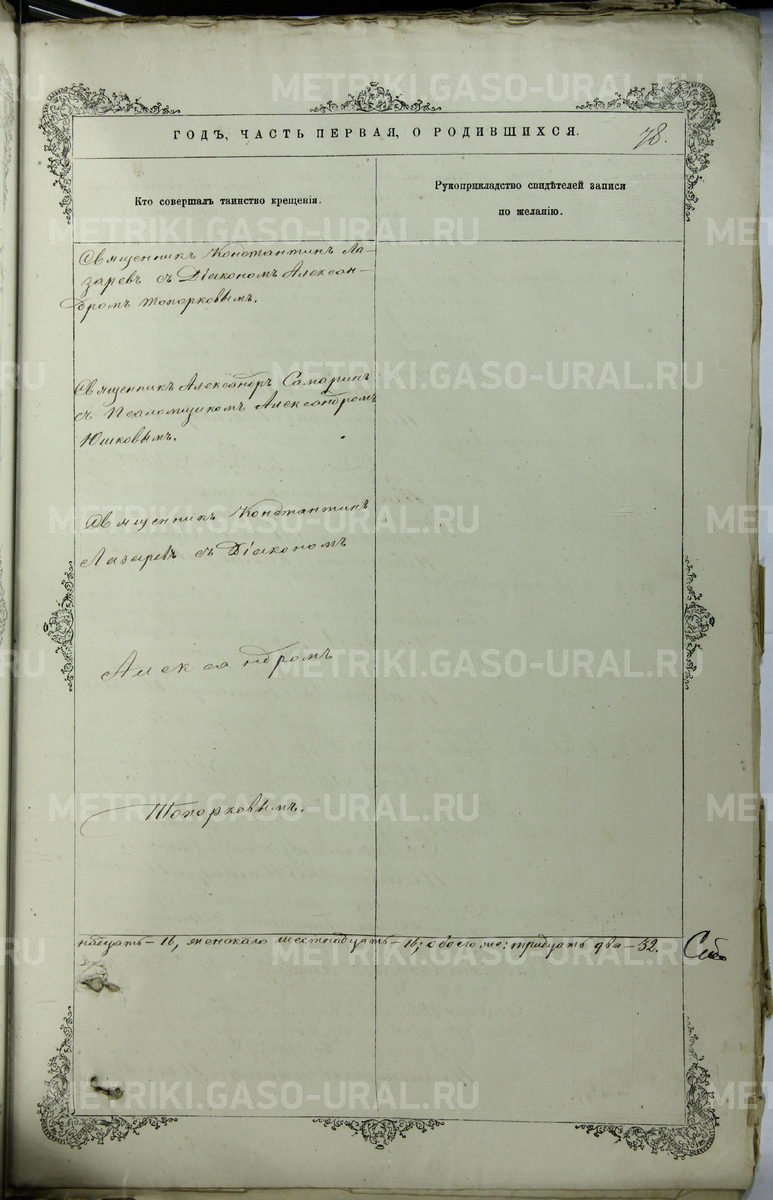 METRIKI.GASO-URAL.RU
ГОДЪ, ЧАСТЬ ПЕРВАЯ, О РОДИВШИХСЯ.
78.
Кто совершалъ таинство крещенія.
Рукоприкладство свидѣтелей записи
по желанію.
Священникъ Константинъ Ла-
заревъ съ Діакономъ Алексан-
дромъ Топорковымъ.
Священникъ Александръ Самаринъ
съ Псаломщикомъ Александромъ
Юшковымъ.
Священникъ Константинъ
Лазаревъ съ Діакономъ
Александромъ
Топорковымъ.
надцать – 16, женскаго шестнадцать – 16; обоего же: тридцать два – 32.